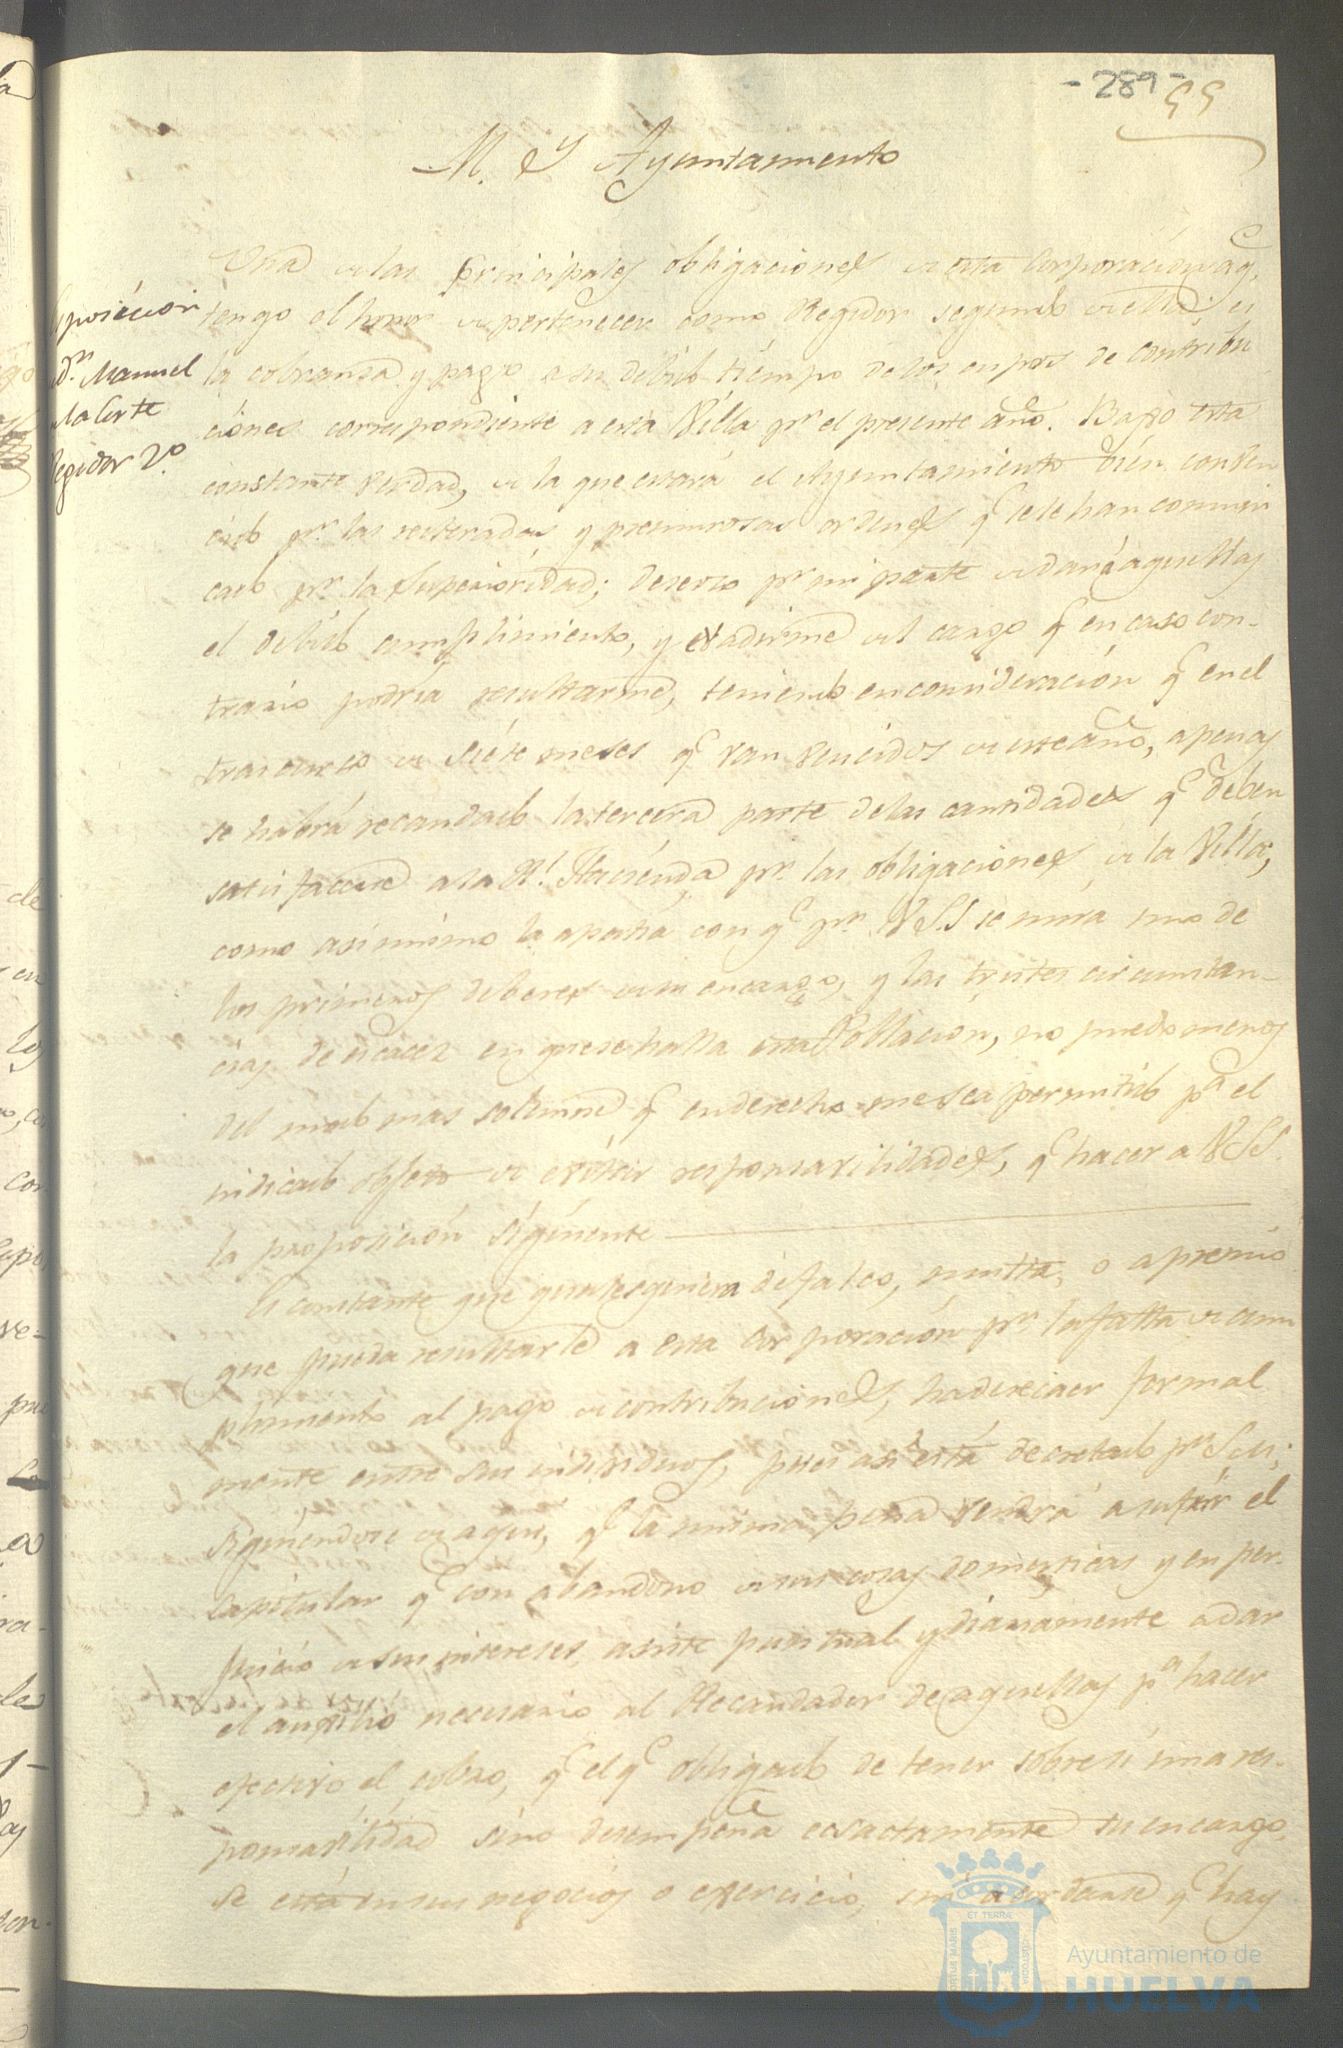 - 289 -
55
M. Y Ayuntamiento
posicion
dn. Manuel
la Corte
Regidor 2o.
Una de las principales obligaciones de esta Corporacion a q.
tengo el honor de pertenecer como Regidor segundo de ella es
la cobranza y pago a su debido tiempo de los cupos de Contribu
ciones correspondiente a esta Villa pr. el presente año. Bajo esta
constante verdad, de la que estará el Ayuntamiento bien conven
cido pr. las reiteradas y premurosas ordenes q.e se le han comuni
cado pr. la Superioridad; deseoso pr. mi parte de dar á aquellas
el debido cumplimiento, y evadirme del cargo q.e en caso con-
trario podria resultarme, teniendo en consideracion q.e en el
trascurso de siete meses q.e van vencidos de este año, apenas
se habrá recaudado la tercera parte de las cantidades q.e deben
satisfacerse a la Rl. Hacienda pr. las obligaciones de la Villa;
como asimismo la apatia con q.e pr. VSS se mira uno de
los primeros deberes de su encargo, y las tristes circunstan-
cias de escases en que se halla esta Poblacion, no puedo menos
del modo mas solemne q.e en derecho me sea permitido pa. el
indicado objeto de evitar responsavilidades, q.e hacer a VSS.
la proposicion siguiente
Es constante que qualesquiera defalco, multa, o apremio
que pueda resultarle a esta Corporacion pr. la falta de cum
plimiento al pago de contribuciones, ha de recaer formal
mente entre sus individuos, pues asi está decretado pr. S.M.;
siguiendose de aqui, q.e la misma pena vendrá a sufrir el
Capitular q.e con abandono de sus cosas domesticas y en per-
juicio de sus intereses, asiste puntual y diariamente a dar
el auxilio necesario al Recaudador de aquellas pa. hacer
efectivo el cobro, q.e el q.e obligado de tener sobre si una res-
ponsavilidad sino desempeña ecsactamente su encargo,
se está en sus negocios o exercicio, sin acordarse q.e hay
Ayuntamiento de
HUELVA